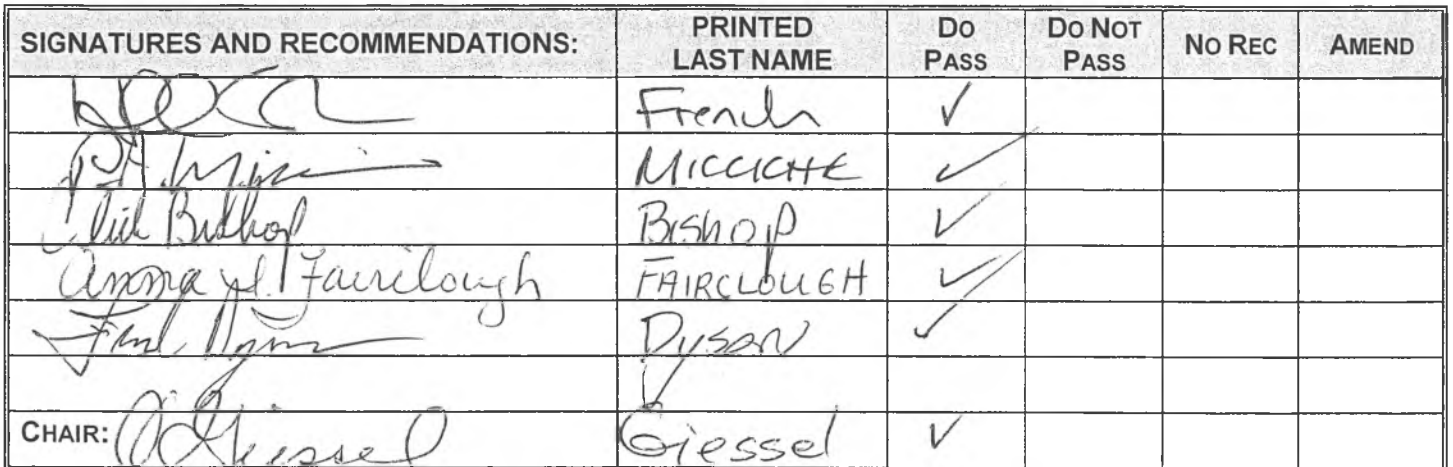 SIGNATURES AND RECOMMENDATIONS: PRINTED LAST NAME DO PASS DO NOT PASS NO REC AMEND
French ✓
P.A. Micciche MICCICHE ✓
Click Bishop Bishop ✓
Anna I. Fairclough FAIRCLOUGH ✓
Fred Dyson Dyson ✓
CHAIR: C Giessel Giessel ✓